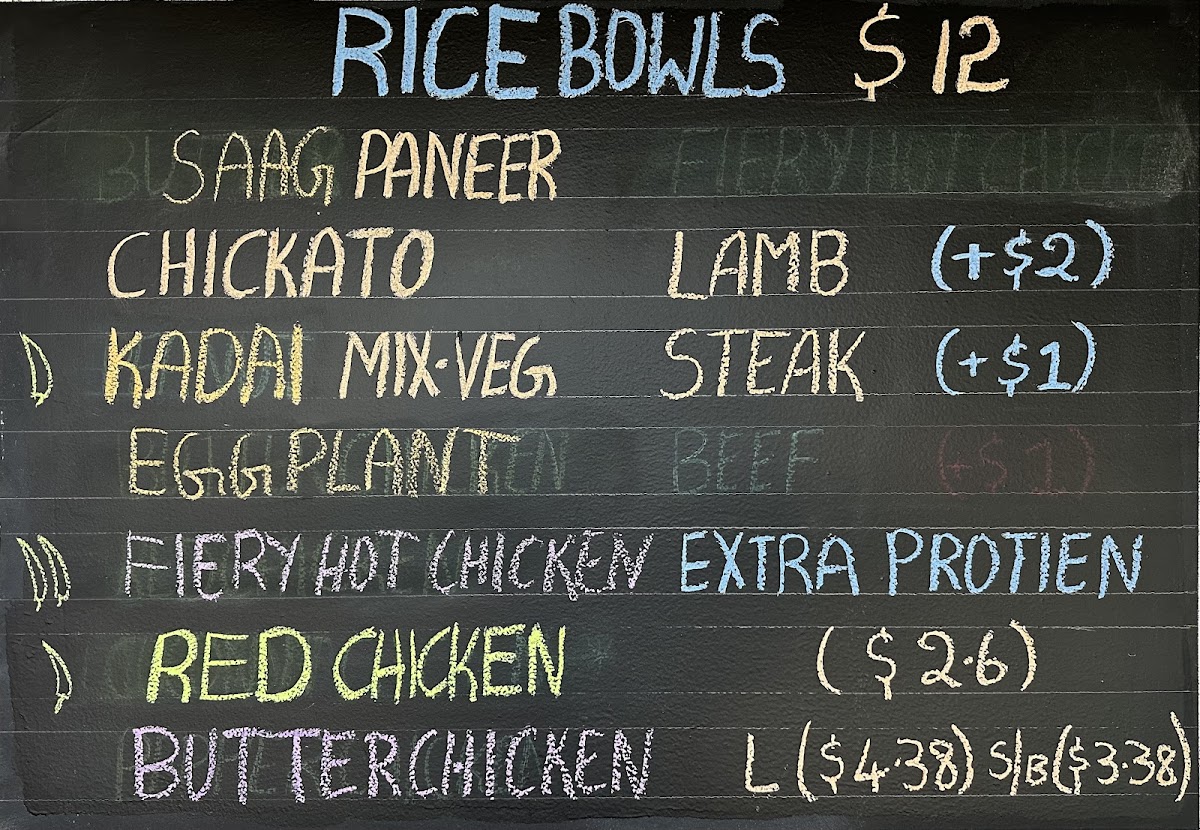 RICE BOWLS $12
SAAG PANEER
CHICKATO LAMB (+$2)
KADAI MIX-VEG STEAK (+$1)
EGGPLANT BEEF (+$1)
FIERY HOT CHICKEN EXTRA PROTIEN
RED CHICKEN ($2.6)
BUTTER CHICKEN L ($4.38) S/B ($3.38)